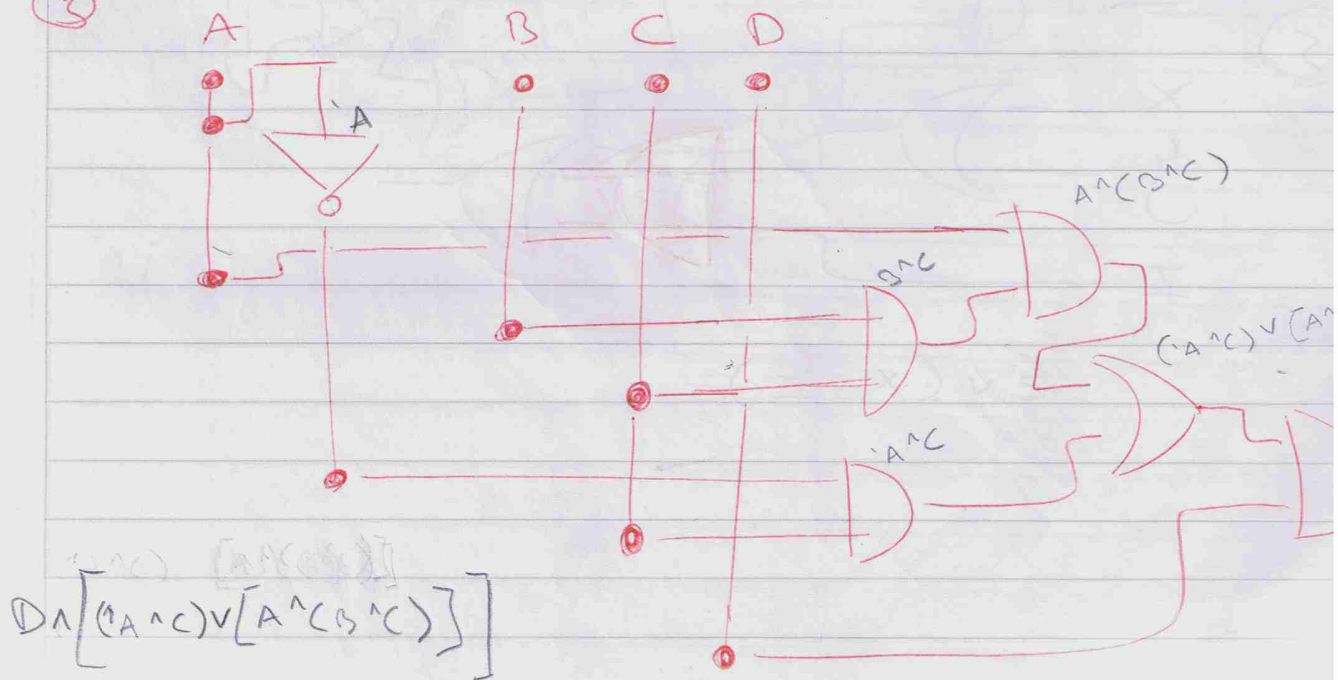 3
A B C D
'A
A^(B^C)
B^C
('A^C)v[A^
'A^C
D^[('A^C)v[A^(B^C)]]